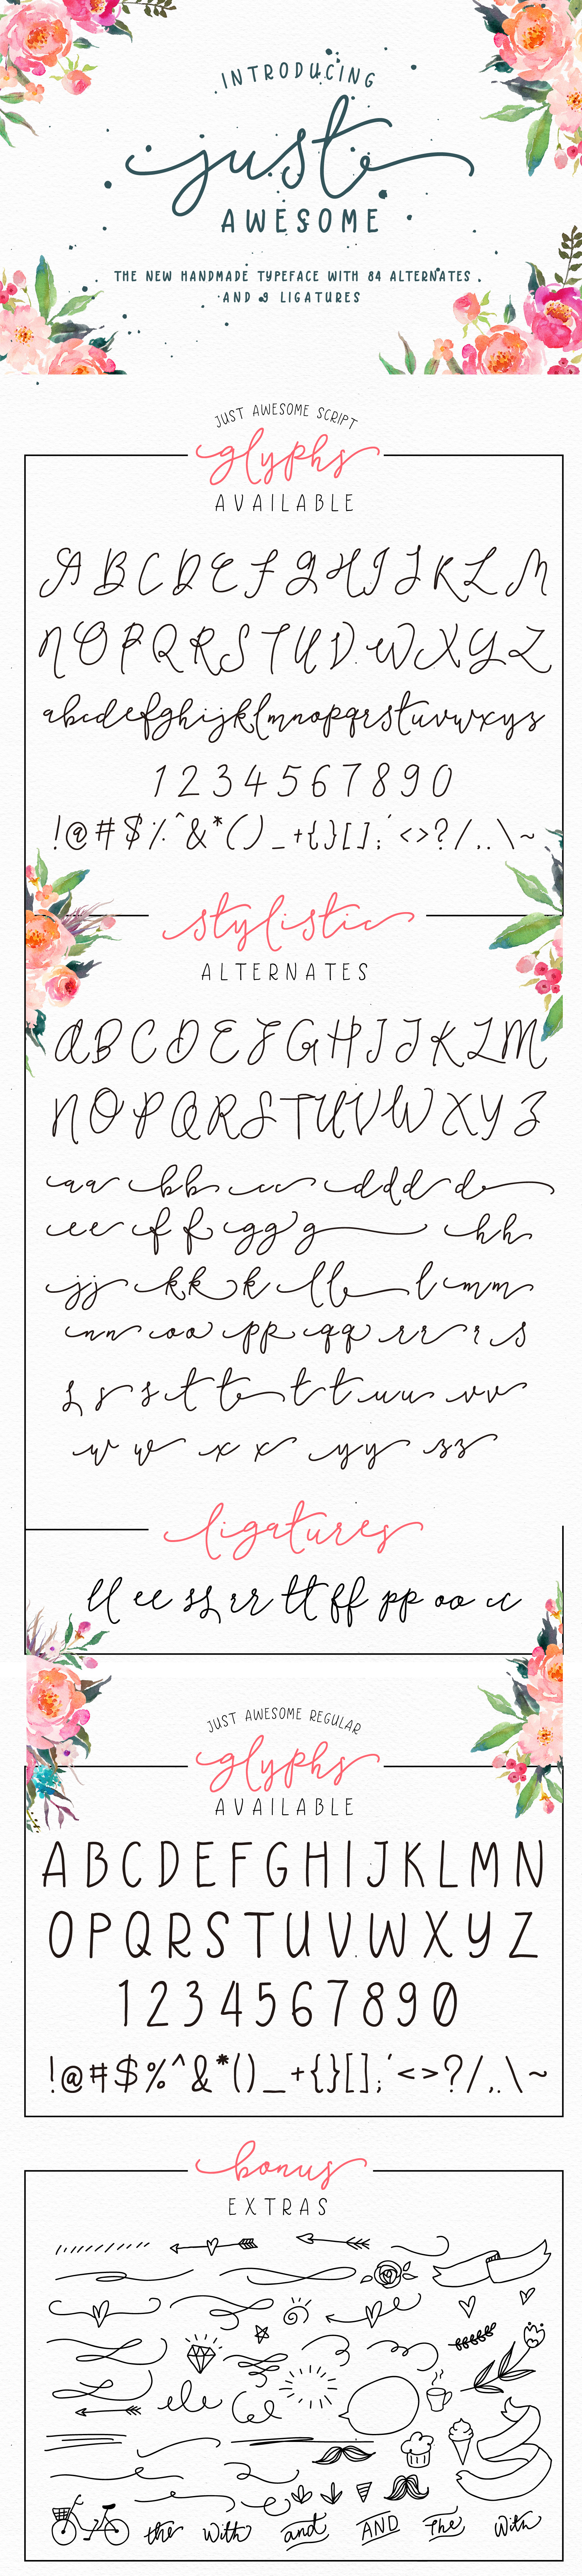 INTRODUCING
just
AWESOME
THE NEW HANDMADE TYPEFACE WITH 84 ALTERNATES
AND 9 LIGATURES
JUST AWESOME SCRIPT
glyphs
AVAILABLE
A B C D E F G H I J K L M
N O P Q R S T U V W X Y Z
abcdefghijklmnopqrstuvwxyz
1 2 3 4 5 6 7 8 9 0
!@#$%^&*()_+{}[];'<>?/,.\~
stylistic
ALTERNATES
A B C D E F G H I J K L M
N O P Q R S T U V W X Y Z
aa bb cc ddd d
ee f f gg g hh
jj kk k ll l mm
nn oo pp qq rr r s
s s s t t t t uu vv
w w x x yy zz
ligatures
ll ee ss rr tt ff pp oo cc
JUST AWESOME REGULAR
glyphs
AVAILABLE
ABCDEFGHIJKLMN
OPQRSTUVWXYZ
1234567890
!@#$%^&*()_+{}[];'<>?/,.\~
bonus
EXTRAS
the With and AND The With